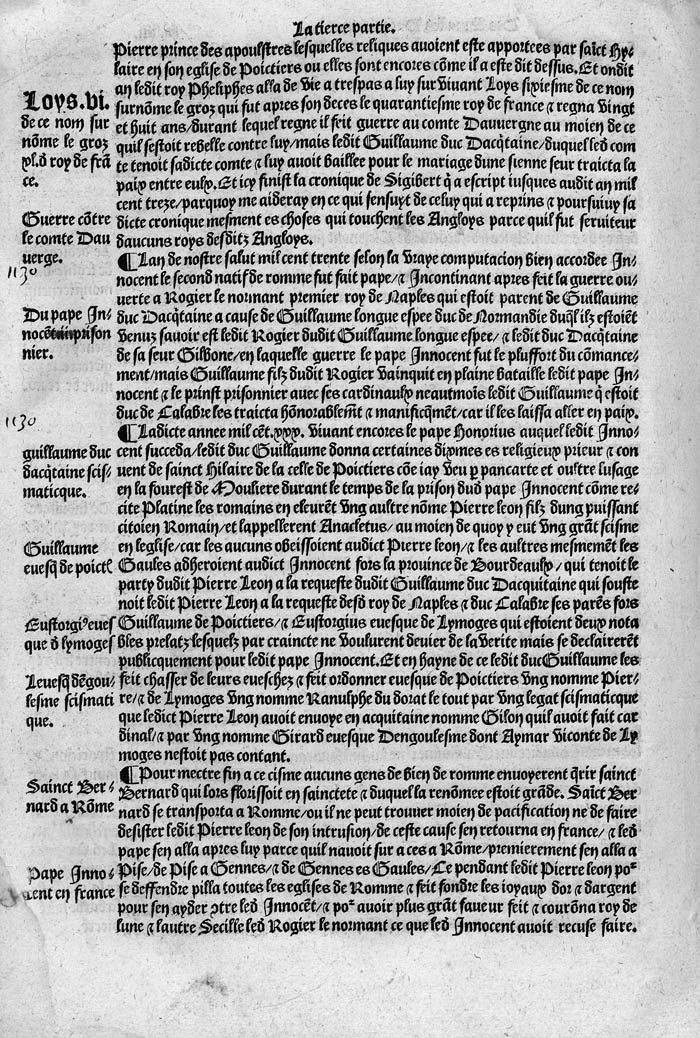 La tierce partie.
Pierre prince des apoulstres lesquelles reliques avoient este apportees par saīct Hy⸗
laire en son eglise de Poictiers ou elles sont encores cōme il a este dit dessus. Et ondit
an ledit roy Phelippes alla de vie a trespas a luy survivant Loys sixiesme de ce nom
surnōme le groz qui fut apres son deces le quarantiesme roy de france ⁊ regna vingt
et huit ans/durant lequel regne il feit guerre au comte Dauvergne au moien de ce
quil sestoit rebelle contre luy/mais ledit Guillaume duc Dacq̄taine/duquel led com
te tenoit sadicte comte ⁊ luy avoit baillee pour le mariage dune sienne seur traicta la
paix entre eulx. Et icy finist la cronique de Sigibert q̄ a escript iusques audit an mil
cent treze/parquoy me aideray en ce qui sensuyt de celuy qui a reprins ⁊ poursuivy sa
dicte cronique mesment es choses qui touchent les Angloys parce quil fut serviteur
daucuns roys desditz Angloys.
¶Lan de nostre salut mil cent trente selon la vraye computacion bien accordee In⸗
nocent le second natif de romme fut fait pape/⁊ Incontinant apres feit la guerre ou⸗
verte a Rogier le normant premier roy de Naples qui estoit parent de Guillaume
duc Dacq̄taine a cause de Guillaume longue espee duc de Normandie duq̄l ilz estoiēt
venuz savoir est ledit Rogier dudit Guillaume longue espee/⁊ ledit duc Dacq̄taine
de sa seur Gilbone/en laquelle guerre le pape Innocent fut le plusfort du cōmance⸗
ment/mais Guillaume filz dudit Rogier vainquit en plaine bataille ledit pape In⸗
nocent ⁊ le prinst prisonnier avec ses cardinaulx neautmoīs ledit Guillaume q̄ estoit
duc de Calabre les traicta hōnorablemēt ⁊ manificq̄mēt/car il les laissa aller en paix.
¶Ladicte annee mil cēt.xxx. vivant encores le pape Honorius auquel ledit Inno⸗
cent succeda/ledit duc Guillaume donna certaines dixmes es religieux prieur ⁊ con
vent de sainct Hilaire de la celle de Poictiers cōe iay veu p pancarte et oultre lusage
en la fourest de Mouliere durant le temps de la prison dud pape Innocent cōme re⸗
cite Platine les romains en eleurēt vng aultre nōme Pierre leon filz dung puissant
citoien Romain/et lappellerent Anacletus/au moien de quoy y eut vng grāt scisme
en leglise/car les aucuns obeissoient audict Pierre leon/⁊ les aultres mesmemēt les
Gaules adheroient audict Innocent fors la province de Bourdeaulx/qui tenoit le
party dudit Pierre Leon a la requeste dudit Guillaume duc Dacquitaine qui souste
noit ledit Pierre Leon a la requeste desd roy de Naples ⁊ duc Calabre ses parēs fors
Guillaume de Poictiers/⁊ Eustorgius evesque de Lymoges qui estoient deux nota
bles prelatz lesquelz par craincte ne voulurent devier de la verite mais se declairerēt
publicquement pour ledit pape Innocent. Et en hayne de ce ledit duc Guillaume les
feit chasser de leurs eveschez ⁊ feit ordonner evesque de Poictiers vng nomme Pier⸗
re/⁊ de Lymoges vng nomme Ranulphe du dorat le tout par vng legat scismaticque
que ledict Pierre Leon avoit envoye en acquitaine nomme Gilon quil avoit fait car
dinal/⁊ par vng nomme Girard evesque Dengoulesme dont Aymar viconte de Ly
moges nestoit pas contant.
¶Pour mectre fin a ce cisme aucuns gens de bien de romme envoyerent q̄rir sainct
Bernard qui lors florissoit en sainctete ⁊ duquel la renōmee estoit grāde. Saīct Ber
nard se transporta a Romme/ou il ne peut trouver moien de pacification ne de faire
desister ledit Pierre leon de son intrusion/de ceste cause sen retourna en france/⁊ led
pape sen alla apres luy parce quil navoit sur acces a Rōme/premierement sen alla a
Pise/de Pise a Gennes/⁊ de Gennes es Gaules/Ce pendant ledit Pierre leon po᷑
se deffendre pilla toutes les eglises de Romme ⁊ feit fondre les ioyaux dor ⁊ dargent
pour sen ayder ꝯtre led Innocēt/⁊ po᷑ avoir plus grāt faveur feit ⁊ courōna roy de
lune ⁊ lautre Secille led Rogier le normant ce que led Innocent avoit recuse faire.
Loys.vi.
de ce nom sur
nōme le groz
xl.d roy de frā
ce.
Guerre cōtre
le comte Dau
vergne.
1130
Du pape In⸗
nocēt prison
nier.
1130
guillaume duc
dacq̄taine scis⸗
maticque.
Guillaume
evesq̄ de poictꝭ
Eustorgiꝰ eves
que d lymoges
Levesq̄ dēgou⸗
lesme scismati
que.
Sainct Ber⸗
nard a Rōme
Pape Inno⸗
cent en france